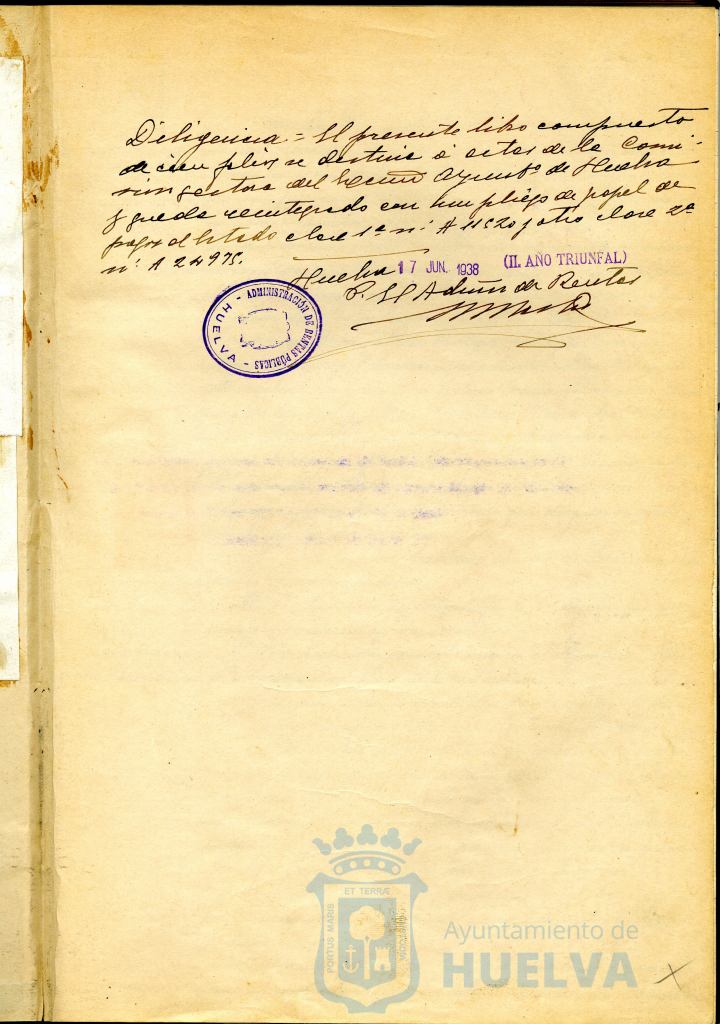 Diligencia = El presente libro compuesto
de cien pliegos se destina á actas de la Comi-
sion gestora del Excmo Ayuntº de Huelva
y queda reintegrado con un pliego de papel de
pagos al Estado clase 1ª nº A 11520 y otro clase 2ª
nº A 24975.
Huelva 17 JUN. 1938 (II. AÑO TRIUNFAL)
P. El Admor de Rentas
ADMINISTRACIÓN DE RENTAS PÚBLICAS
- HUELVA -
PORTUS MARIS ET TERRÆ CUSTODIA
Ayuntamiento de
HUELVA